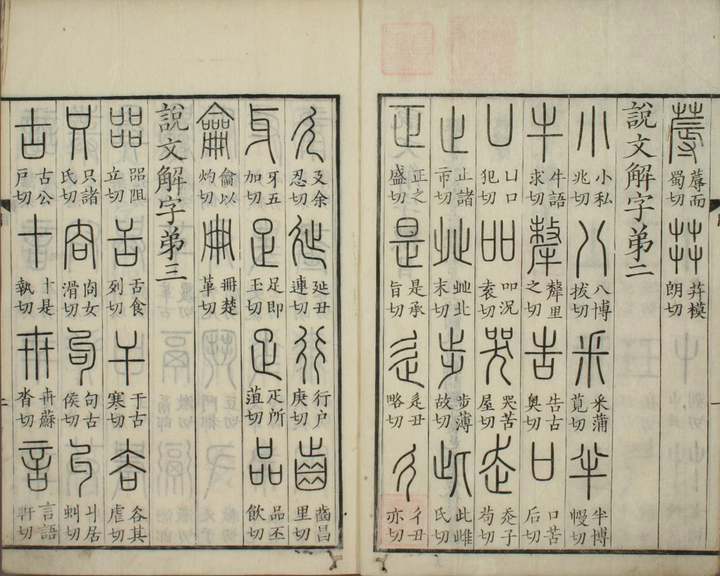 蓐 蓐而蜀切 茻 茻模朗切
說文解字弟二
小 小私兆切 八 八博拔切 釆 釆蒲莧切 半 半博幔切
牛 牛語求切 犛 犛里之切 告 告古奧切 口 口苦后切
凵 凵口犯切 吅 吅況袁切 哭 哭苦屋切 走 走子苟切
止 止諸市切 癶 癶北末切 步 步薄故切 此 此雌氏切
正 正之盛切 是 是承旨切 辵 辵丑略切 彳 彳丑亦切
廴 廴余忍切 㢟 㢟丑連切 行 行户庚切 齒 齒昌里切
牙 牙五加切 足 足即玉切 疋 疋所菹切 品 品丕飲切
龠 龠以灼切 冊 冊楚革切
說文解字弟三
㗊 㗊阻立切 舌 舌食列切 干 干古寒切 谷 谷其虐切
只 只諸氏切 㕯 㕯女滑切 句 句古侯切 丩 丩居虯切
古 古公戶切 十 十是執切 卅 卅蘇沓切 言 言語軒切